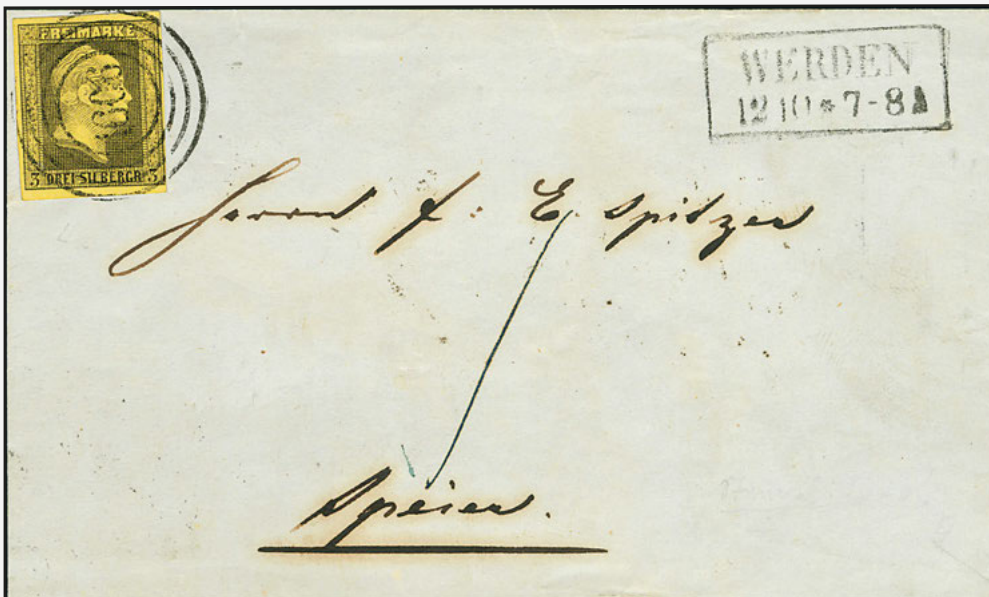 FREIMARKE
3 DREI SILBERGR. 3
WERDEN
12 10 * 7-8
Herrn f: E. Spitzer
Speier.